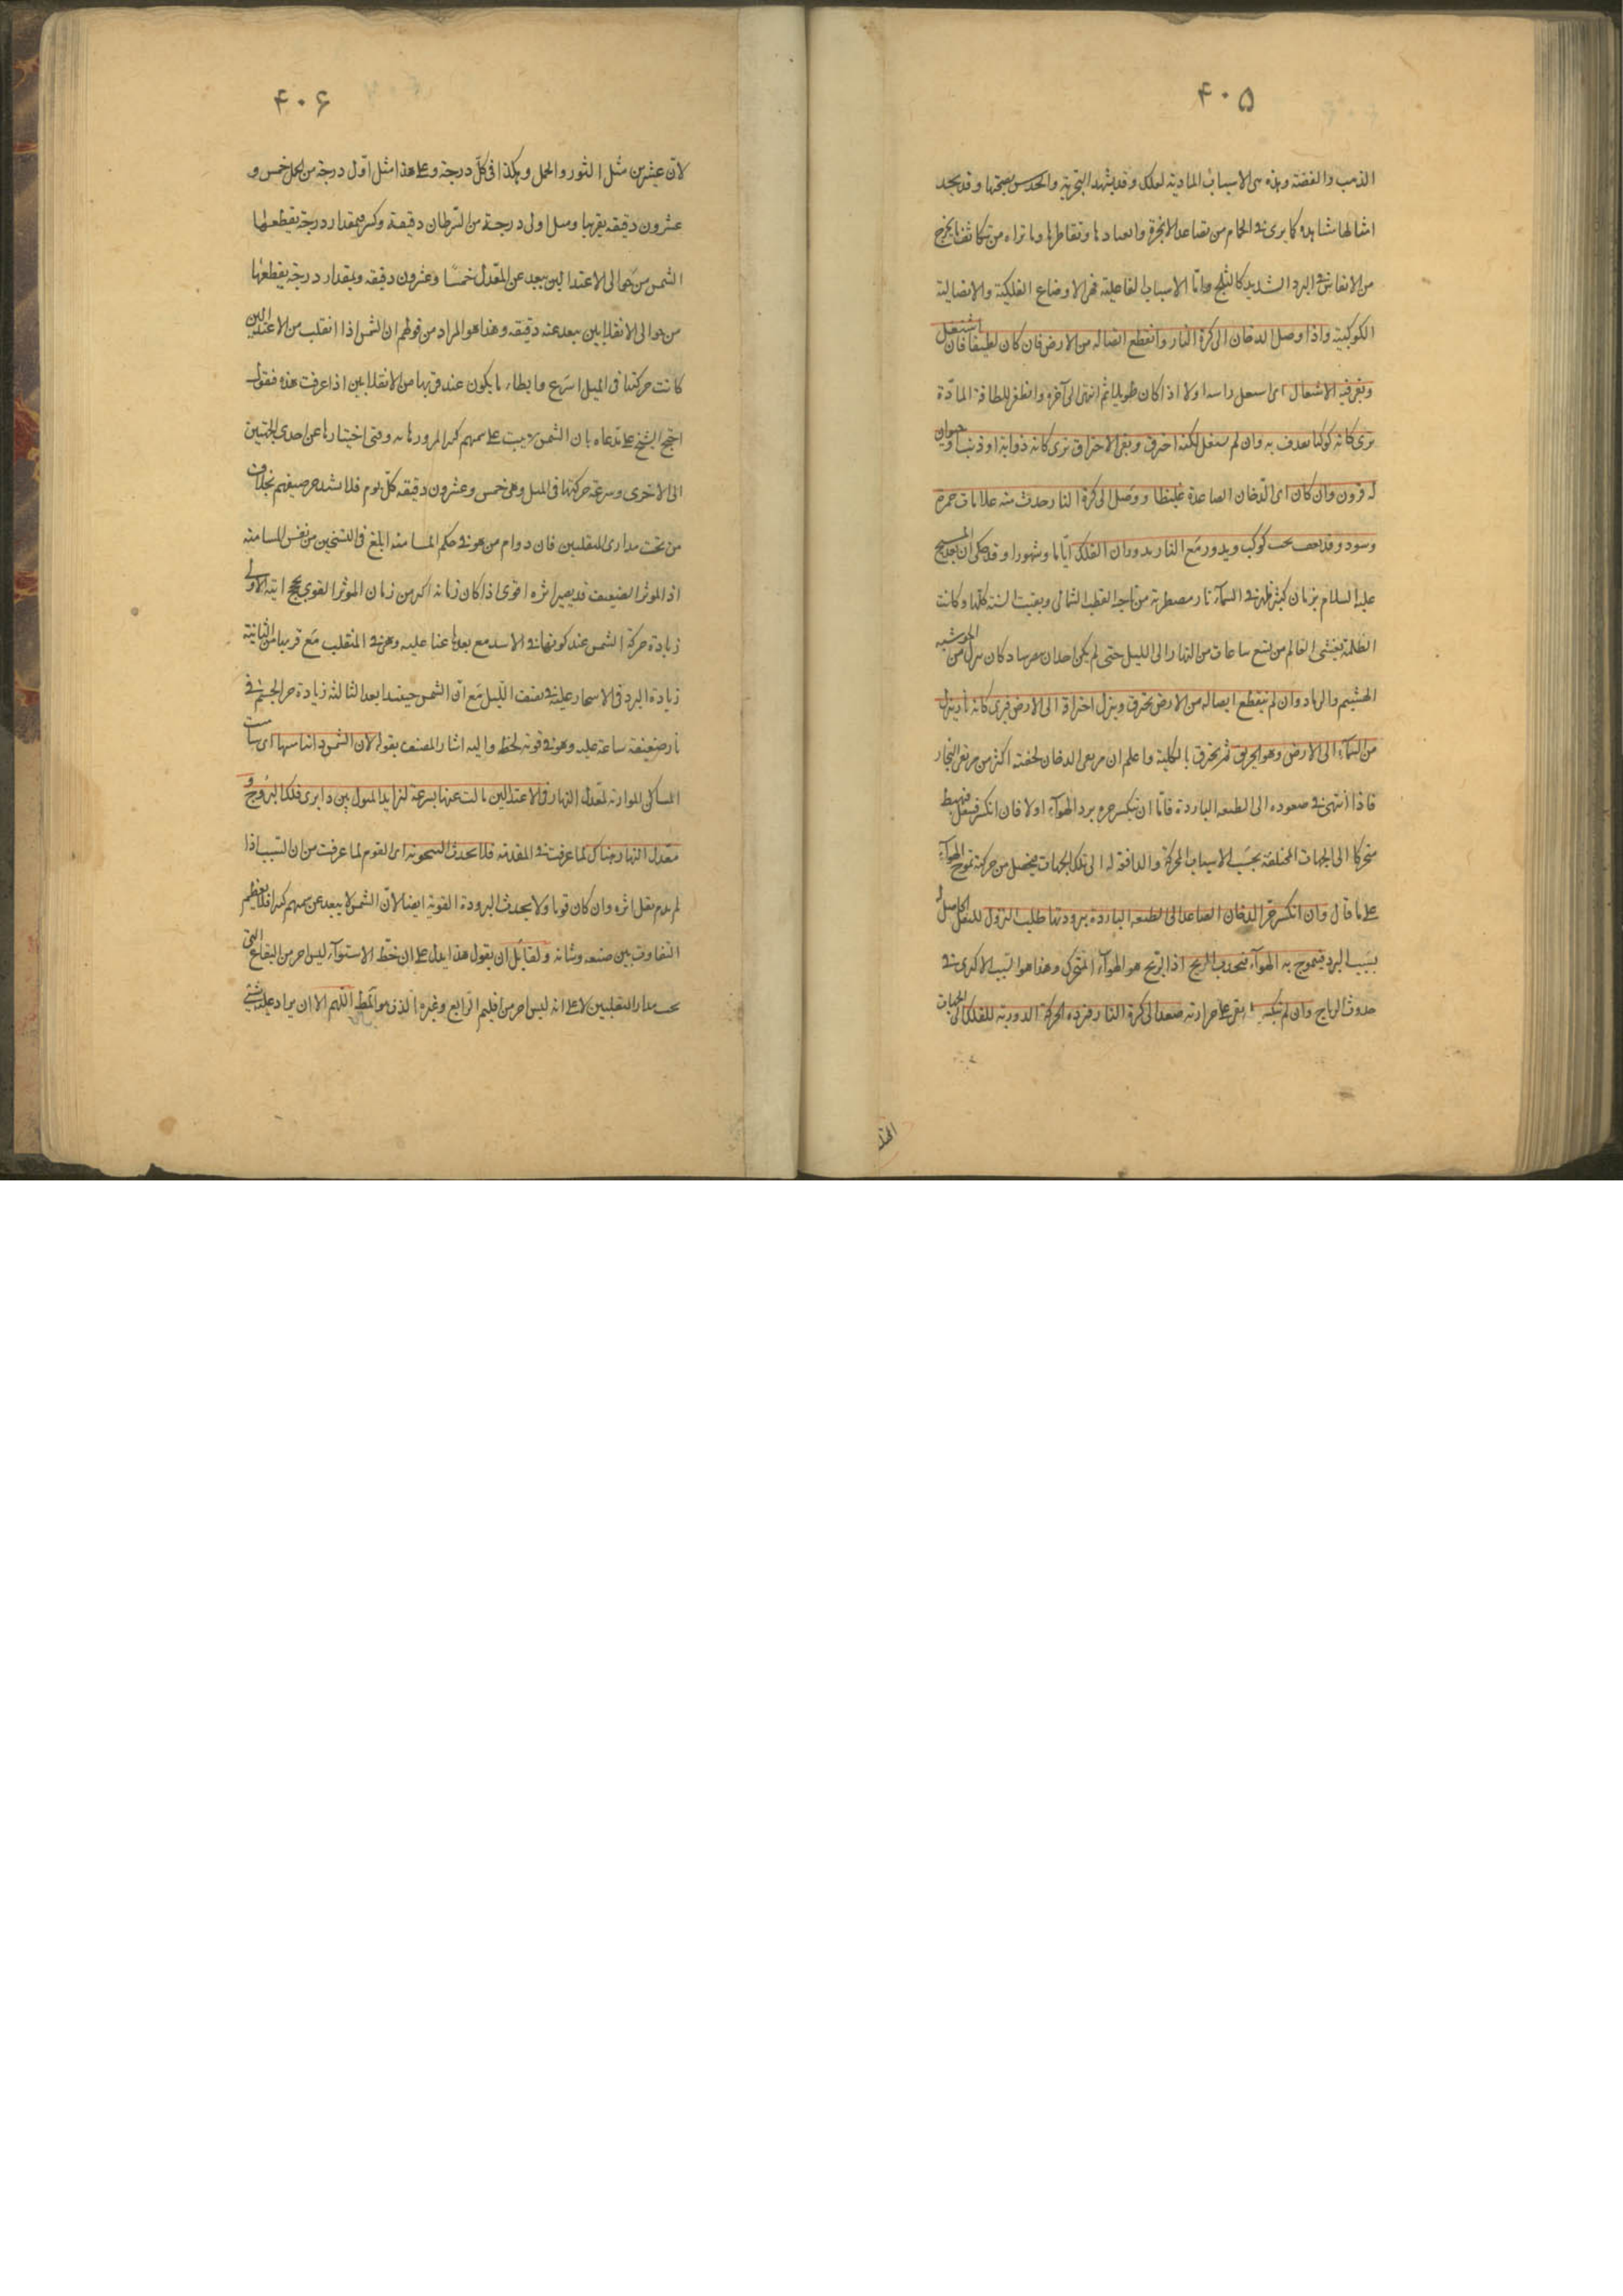 ۴۰۵
الذهب والفضة وهذه هى الاسباب المادية لعلك وقد يشهد التجربة والحدس بصحتها وقد يجد
امثالها مشاهدة كما يرى فى الحمام من تصاعد الابخرة وانعقادها وتقاطرها وما نراه من تكاثف ما يخرج
من الانفاس فى البرد الشديد كالثلج واما الاسباب الفاعلية فهى الاوضاع الفلكية والاتصالية
الكوكبية واذا وصل الدخان الى كرة النار وانقطع اتصاله من الارض فان كان لطيفا فان اشتعل
وبقى فيه الاشتعال اى اشتعل راسه اولا اذا كان طويلا ثم انتهى الى آخره وانطفى للطافة المادة
يرى كانه كوكبا يقذف به وان لم يشتعل لكنه احترق وبقى الاحتراق يرى كانه ذوابة او ذنب او حيوان
له قرون وان كان اى الدخان الصاعدة غليظا ووصل الى كرة النار حدث منه علامات حمر
وسود وقد يقف تحت كوكب ويدور مع النار بدوران الفلك اياما وشهورا وقد حكى ان بعد المسيح
عليه السلام بزمان كثير ظهر فى السماء نار مضطربة من ناحية القطب الشمالى وبقيت السنة كلها وكانت
الظلمة يغشى العالم من تسع ساعات من النهار الى الليل حتى لم يكن احد ان يبصر وكان ينزل من الجو شبه
الهشيم والرماد وان لم ينقطع اتصاله من الارض يحترق وينزل احتراقه الى الارض فيرى كانه نار ينزل
من السماء الى الارض وهو الحريق ثم يحترق بالكلية واعلم ان مرتقى الدخان لخفته اكثر من مرتقى البخار
فاذا انتهى فى صعوده الى الطبقة الباردة فاما ان ينكسر حره ببرد الهواء اولا فان انكسر فيثقل فيهبط
متحركا الى الجهات المختلفة بحسب الاسباب المحركة والدافقة له الى تلك الجهات فيحصل من حركته تموج الهواء
على ما قال وان انكسر حر الدخان الصاعد الى الطبقة الباردة ببرودتها طلب النزول للثقل الحاصل له
بسبب البرد فيتموج به الهواء فيحدث الريح اذ الريح هو الهواء المتحرك وهذا هو السبب الاكثرى فى
حدوث الرياح وان لم ينكسر بل بقى على حرارته صعد الى كرة النار فترده الحركة الدورية للفلك الى الجهات
۴۰۶
لان عشرين مثل الثور والحمل وهكذا فى كل درجة وعلى هذا مثل اول درجة من الحمل خمس و
عشرون دقيقه بقربها وميل اولى درجة من السرطان دقيقة وكسر فبمقدار درجة يقطعها
الشمس من حوالى الاعتدالين يبعد عن المعدل خمسا وعشرون دقيقه وبمقدار درجة يقطعها
من حوالى الانقلابين يبعد عنه دقيقه وهذا هو المراد من قولهم ان الشمس اذا انقلب من الاعتدالين
كانت حركتها فى الميل اسرع وابطاء ما يكون عند قربها من الانقلابين اذا عرفت هذه فنقول
احتج الشيخ على مدعاه بان الشمس لا يثبت على سمتهم كثيرا لمرورها به وقتى اختيارها عن احدى الجهتين
الى الاخرى وسرعة حركتها فى الميل وهى خمس وعشرون دقيقه كل يوم فلا يشتد حر صيفهم بخلاف
من تحت مدارى المنقلبين فان دوام من هو فى حكم المسامتة ابلغ فى التسخين من نفس المسامتة
اذ الموثر الضعيف قد يصير اثره اقوى اذا كان زمانه اكثر من زمان الموثر القوى الاولى
زيادة حركة الشمس عند كونها فى الاسد مع بعدها عنا عليه وهى فى المنقلب مع قربها منا الثانية
زيادة البرد فى الاسحار عليه فى نصف الليل مع ان الشمس حينئذ ابعد الثالثة زيادة حر الجسم فى
نار ضعيفة ساعة عليه وهو فى قوية لحظة واليه اشار المصنف بقوله لان الشمس اذا سامتها اى سامت
المساكن الموازية لمعدل النهار فى الاعتدالين مالت عنها بسرعة لتزايد الميول بين دايرى فلك البروج و
معدل النهار هناك لما عرفت فى المقدمة فلا يحدث السخونة اى القوم لما عرفت من ان السبب اذا
لم يدم يقل اثره وان كان قويا ولا يحدث البرودة القوية ايضا لان الشمس لا يبعد عن سمتهم كثيرا فلا يعظم
التفاوت بين صيفه وشتائه ولقايل ان يقول هذا يدل على ان خط الاستواء ليس احر من البقاع التى
تحت مدار المنقلبين لا على انه ليس احر من اقليم الرابع وغيره الذى هو المط اللهم الا ان يراد على شتى